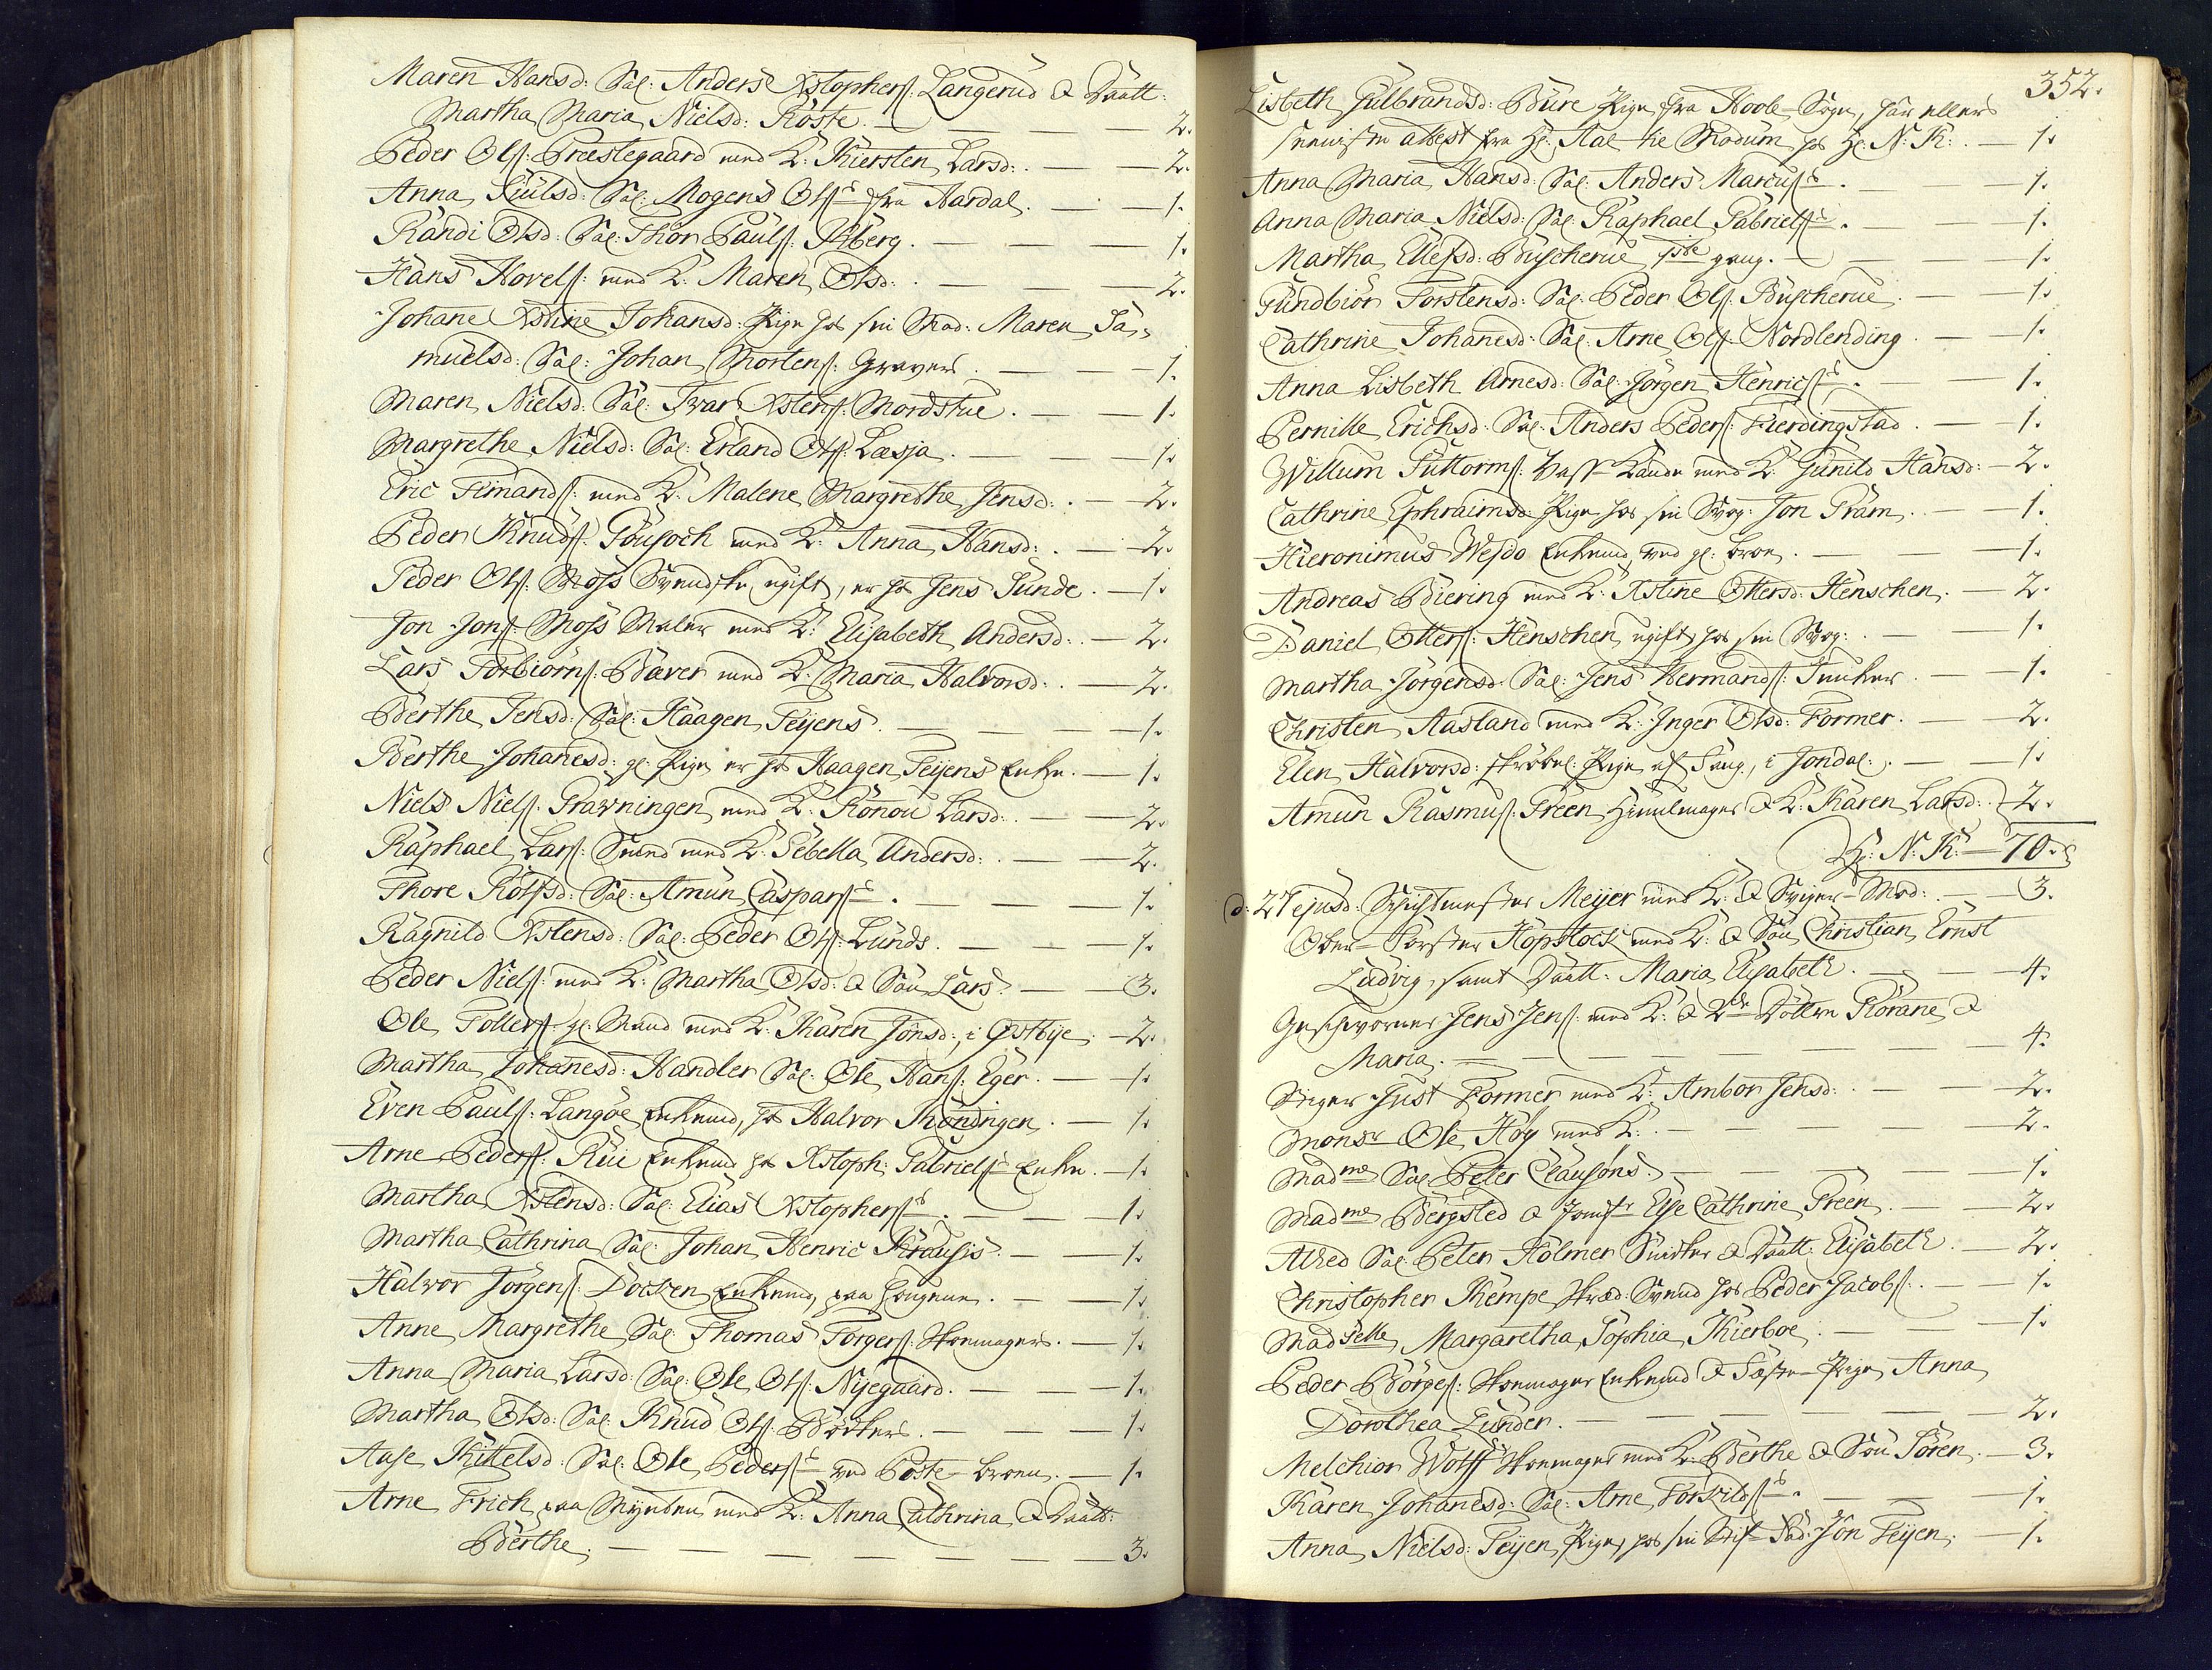 Maren Hansd: Sal: Anders Xstophers: Langerud & Daatt:
Martha Maria Nielsd: Röste. — — — — 2.
Peder Ols: Preestegaard med K: Kiersten Larsd: . — — 2.
Anna Juulsd: Sal: Mogens Ols fra Aardal. — — 1.
Randi Olsd: Sal: Thor Pauls: Aaberg. — — — 1.
Hans Hovels: med K: Maren Olsd: . — — — 2.
Johane Xstine Johansd: Pige hos sin Mod: Maren Sa,,
muelsd: Sal: Johan Mortens: Gravers . — — — 1.
Maren Nielsd: Sal: Ivar Xstens: Mordstue . — — 1.
Margrethe Nielsd: Sal: Erland Ols: Læsja . — — — 1.
Eric Amands: med K: Malene Margrethe Jensd: . — 2.
Peder Knuds: Pousoch med K: Anna Hansd: . — 2.
Peder Ols: Moss Svendske ugift, er hos Jens Sunde. — 1.
Jon Jons: Moss Maler med K: Elisabeth Andersd: . — 2.
Lars Torbiörns: Bæver med K: Maria Halvorsd: . — 2.
Berthe Jensd: Sal: Haagen Teijens . — — — 1.
Berthe Johanesd: gl: Pige er hos Haagen Teijens Enke. — 1.
Niels Niels: Gravningen med K: Ronou Larsd: . — — 2.
Raphael Lars: Svend med K: Sebella Andersd: . — — 2.
Thore Rolfsd: Sal: Amun Caspars . — — — 1.
Ragnild Xstensd: Sal: Peder Ols: Lunds. — — — 1.
Peder Niels: med K: Martha Olsd: & Søn Lars. — — 3.
Ole Tollefs: gl: Mand med K: Karen Jonsd: , i Østbÿe. — 2.
Martha Johanesd: Handler Sal: Ole Hans: Eger. — — 1.
Even Pauls: Langöe Enkemd, hos Halvor Mondrigen . — 1.
Arne Peders: Rue Enkemd hos Xstoph: Gabriels Enke. — 1.
Martha Xstensd: Sal: Elias Xstophers . — — — 1.
Martha Cathrina Sal: Johan Henric Krausis . — — 1.
Halvor Jörgens: Docken Enkemd, paa Hougene . — — 1.
Anne Margrethe Sal: Thomas Torgers: Skomagers. — — 1.
Anna Maria Larsd: Sal: Ole Ols: Nÿegaard. — — 1.
Martha Olsd: Sal: Knud Ols: Bödkers . — — — 1.
Aase Kittelsd: Sal: Ole Peders ved Poste-broen. — 1.
Arne Frich paa Mÿnten med K: Anna Cathrina & Daatt:
Berthe. — — — — — — 3.
352.
Lisbeth Gulbrandsd: Bure Pige fra Hoele Sogn, har ellers
attest fra Hr: Aal til Modum hos Hr: N: K: . — 1.
Anna Maria Hansd: Sal: Anders Marcus . — — 1.
Anna Maria Nielsd: Sal: Raphael Gabriels . — — 1.
Martha Ellefsd: Buscherue 1ste gang. — — — 1.
Gundbiör Torstensd: Sal: Peder Ols: Buscherue . — 1.
Cathrine Johanesd: Sal: Arne Ols: Nordlending . — 1.
Anna Lisbeth Arnesd: Sal: Jörgen Henrics . — — 1.
Pernille Erichsd: Sal: Anders Peders: Fierdingstad . — 1.
Willum Guttorms: Vass-Lande med K: Gunild Hansd: — 2.
Cathrine Ephraimsd: Pige hos sin Svog: Jon Gram . — 1.
Hieronimus Wesdo Enkemd ved gl: broe . — — 1.
Andreas Biering med K: Xstine Ottersd: Henschen. — 2.
Daniel Otters: Henschen ugift hos sin Svog: . — 1.
Martha Jörgensd: Sal: Jens Hermands: Junker . — 1.
Christen Aasland med K: Inger Olsd: Former. — 2.
Elen Halvorsd: skröbel: Pige af Seng, i Jondal: . — 1.
Amun Rasmus: Green Himelmager & K: Karen Larsd: . 2.
Hr: N: K: — 70.
d: 27 ejusd: Schichtmester Meijer med K: & Sviger-Mod: . — 3.
Ober-Forster Hopstock med K: & Søn Christian Ernst
Ludvig, samt Daatt: Maria Elisabeth . — — 4.
Geschworner Jens Jens: med K: & 2de Döttre Rorane &
Maria . — — — — — — 4.
Stiger Just Former med K: Ambor Jensd: . — — 2.
Monsr Ole Höÿ med K: . — — — — 2.
Madme Sal: Peter Clausöns. — — — 1.
Madme Bergsted & Jomfr Else Cathrine Green . — — 2.
Alhed Sal: Peter Holmer Snidker & Daatt: Elisabeth . — 2.
Christopher Kempe Skræd: Svend hos Peder Jacobs: . — 1.
Madselle Margaretha Sophia Kierboe . — — 1.
Peder Börges: Skomager Enkemd & Fæste-Pige Anna
Dorothea Lunder . — — — — 2.
Melchior Wolff Skomager med K: Berthe & Søn Sören . — 3.
Karen Johanesd: Sal: Arne Torkilds . — — — 1.
Anna Nielsd: Teijen, Pige, hos sin Stif-Fad: Jon Teijen. — 1.